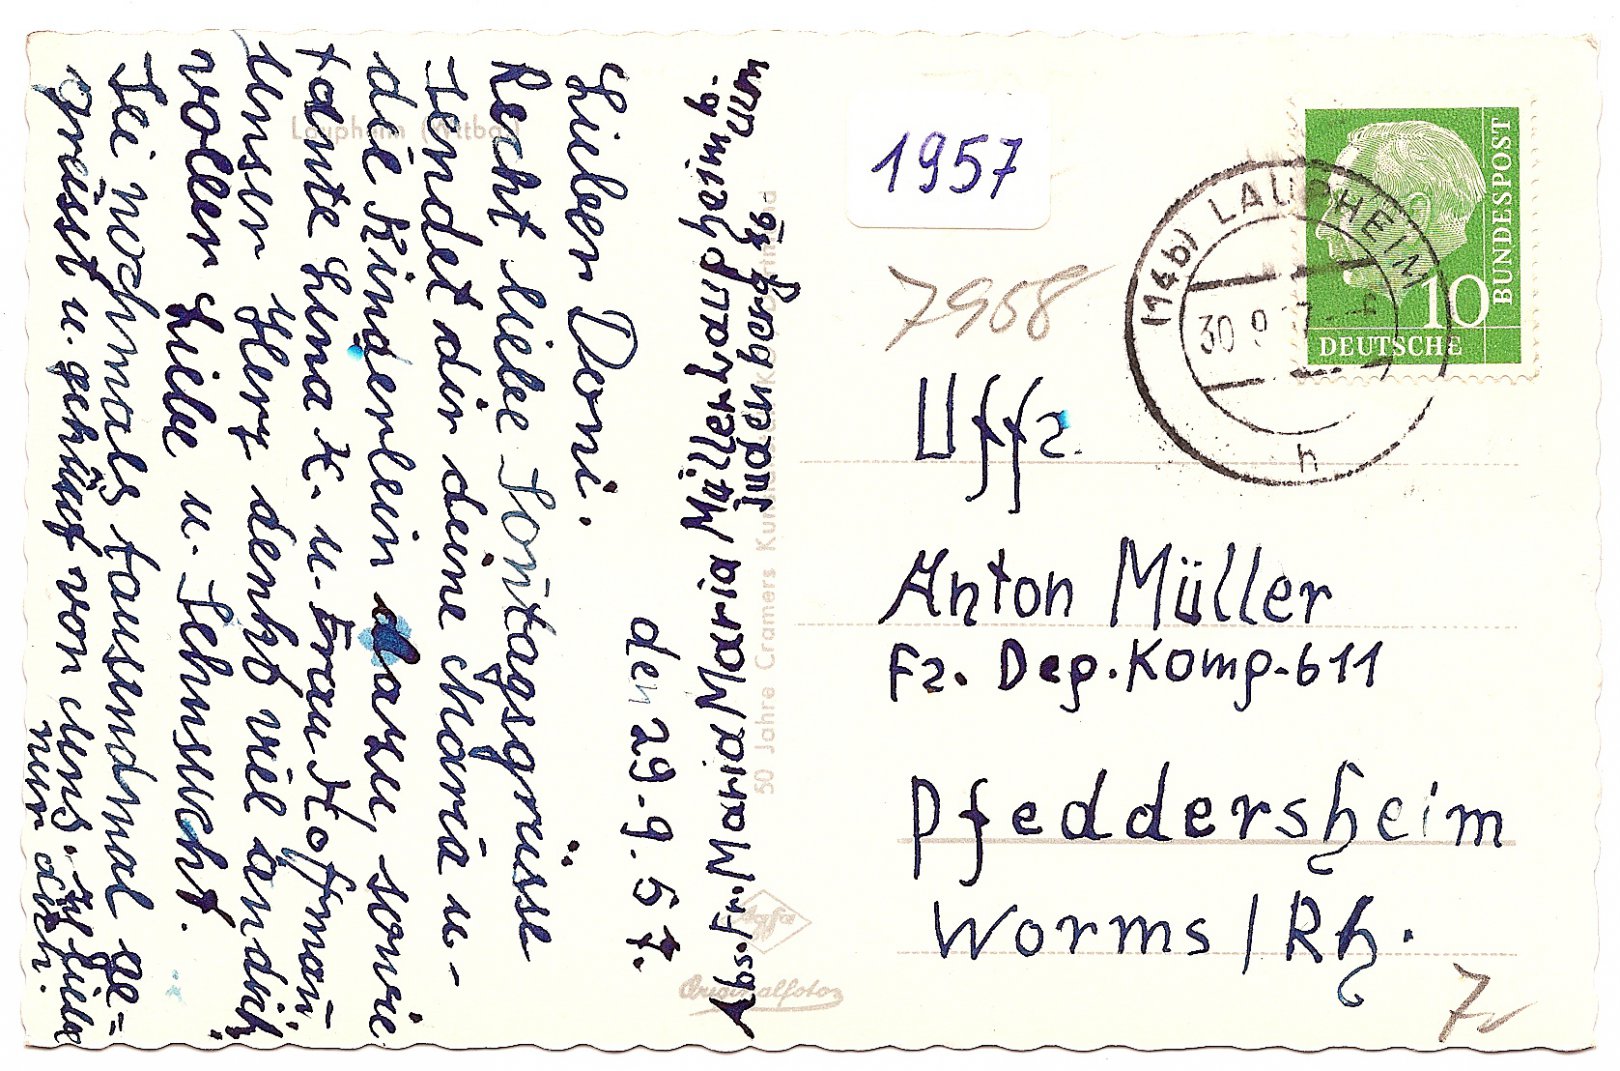 den 29.9.57.
Lieber Doni.
Recht liebe Soñtagsgrüsse
sendet dir deine Maria u-
die Kinderlein dazu, sowie
tante Luna K. u. Frau Hoffmañ
Unser Herz denkt viel an dich
voller Liebe u. Sehnsucht.
Sei nochmals tausendmal ge=
grüsst u. geküsst von uns.
nur dich.
Abs. Fr. Maria Maria Maria Müller Laupheim b. Ulm
Judenberg 26
Laupheim (Wttbg)
50 Jahre Cramers
Agfa
Originalfoto
1957
7958
(14b) LAUPHEIM
30.9.57
h
10
DEUTSCHE
BUNDESPOST
Uffz.
Anton Müller
Fz. Dep. Komp-611
Pfeddersheim
Worms / Rh.
7